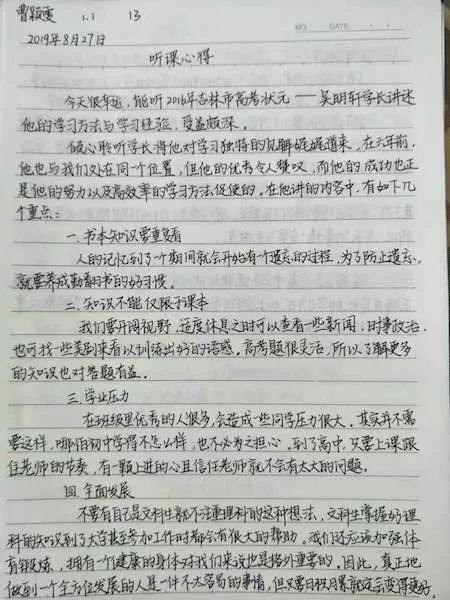 曹颖雯 1.1 13
NO. DATE
2019年8月27日
听课心得
今天很幸运,能听2016年吉林市高考状元——吴明轩学长讲述
他的学习方法与学习经验,受益颇深。
倾心聆听学长将他对学习独特的见解娓娓道来,在六年前,
他也与我们处在同一个位置,但他的优秀令人赞叹,而他的成功也正
是他的努力以及高效率的学习方法促使的。在他讲的内容中,有如下几
个重点:
一.书本知识要重复看
人的记忆到了个期间就会开始有个遗忘的过程,为了防止遗忘,
就要养成勤翻书的好习惯。
二.知识不能仅限于课本
我们要开阔视野,适度休息之时可以查看一些新闻,时事政治,
也可找一些美剧来看以训练出好的语感。高考题很灵活,所以了解更多
的知识也对答题有益。
三.学业压力
在班级里优秀的人很多,会造成一些同学压力很大。其实并不需
要这样,哪怕初中学得不怎么样,也不必为之担心。到了高中,只要上课跟
住老师的节奏,有一颗上进的心且信任老师就不会有太大的问题。
四.全面发展
不要有自己是文科生就不注重理科的这种想法,文科生掌握好理
科的知识到了大学甚至参加工作时都会有很大的帮助。我们还应该加强体
育锻炼,拥有一个健康的身体对我们来说也是格外重要的。因此,真正地
做到一个全方位发展的人是一件不太容易的事情,但只要日积月累就定会变得更好。